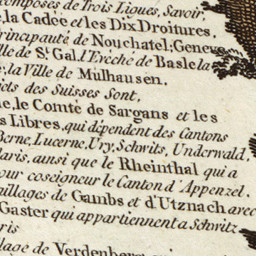 composés de Trois Ligues, Savoir,
la Cadée et les Dix Droitures,
rincipauté de Neuchatel, Geneve
lle de St. Gal, l'Evêché de Basle la
, la Ville de Mulhausen.
jets des Suisses Sont,
e, le Comté de Sargans et les
s Libres, qui dépendent des Cantons
Berne, Lucerne, Ury, Schwits, Underwald,
laris, ainsi que le Rheinthal qui a
our coseigneur le Canton d'Appenzel.
illages de Gambs et d'Utznach avec
Gaster qui appartiennent a Schwitz
ris
lage de Verdenberg